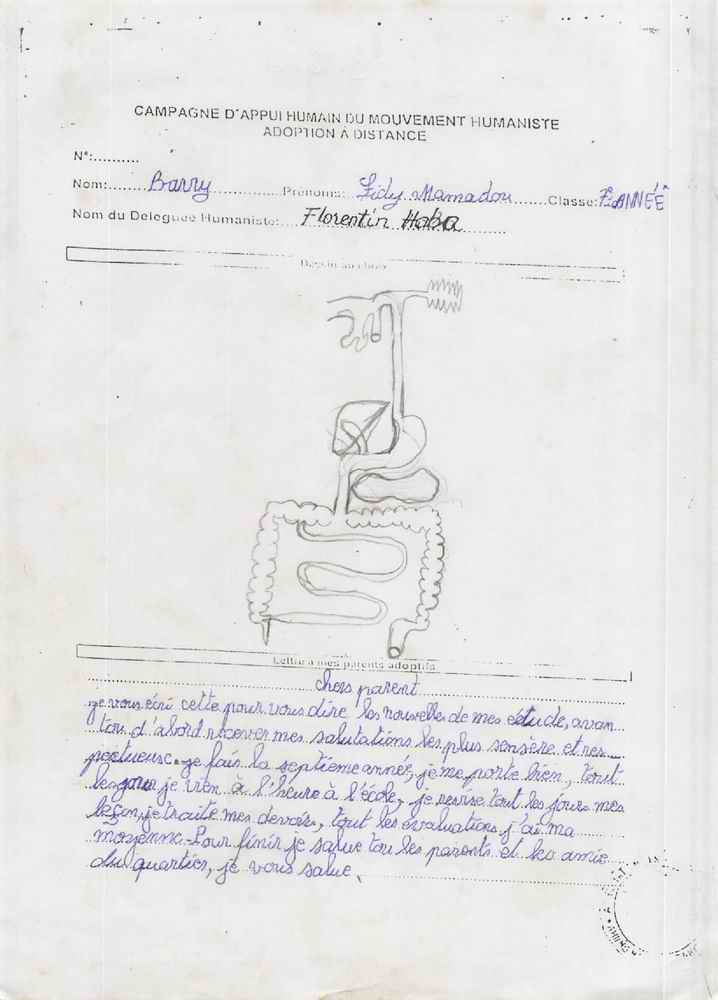 CAMPAGNE D'APPUI HUMAIN DU MOUVEMENT HUMANISTE
ADOPTION À DISTANCE
N°:..........
Nom:.......Barry..................Prénoms: Sidy Mamadou.......Classe:7e ANNÉE
Nom du Deleguée Humaniste:....Florentin Haba.........
Dessin au choix
Lettre à mes parents adoptifs
chers parent
je vous écri cette pour vous dire les nouvelles de mes étude, avan
tou d'abord recever mes salutations les plus sensère et res
pectueuse. je fais la septième année, je me porte bien, tout
les jour je vien à l'heure à l'école, je revise tout les jours mes
leçon, je traite mes devoirs, tout les évaluations j'ai ma
moyenne. Pour finir je salue tou les parents et les amie
du quartier, je vous salue.